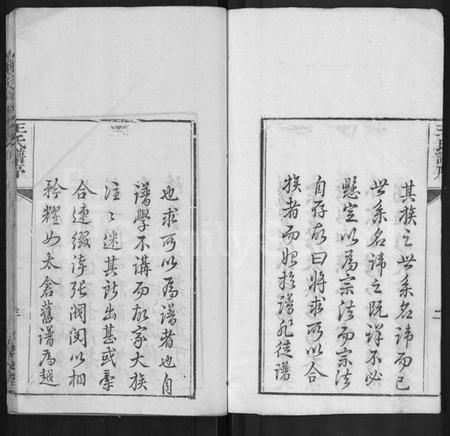 其族之世系名諱而已
世系名諱之既詳不必
懸定以為宗法而宗法
自存故曰將求所以合
族者而始於譜非徒譜
也求所以為譜者也自
譜學不講而故家大族
往々迷其所出甚或羣
合連綴譸張閥閱以相
矜耀如太倉舊譜為越
王氏譜序
王氏譜序